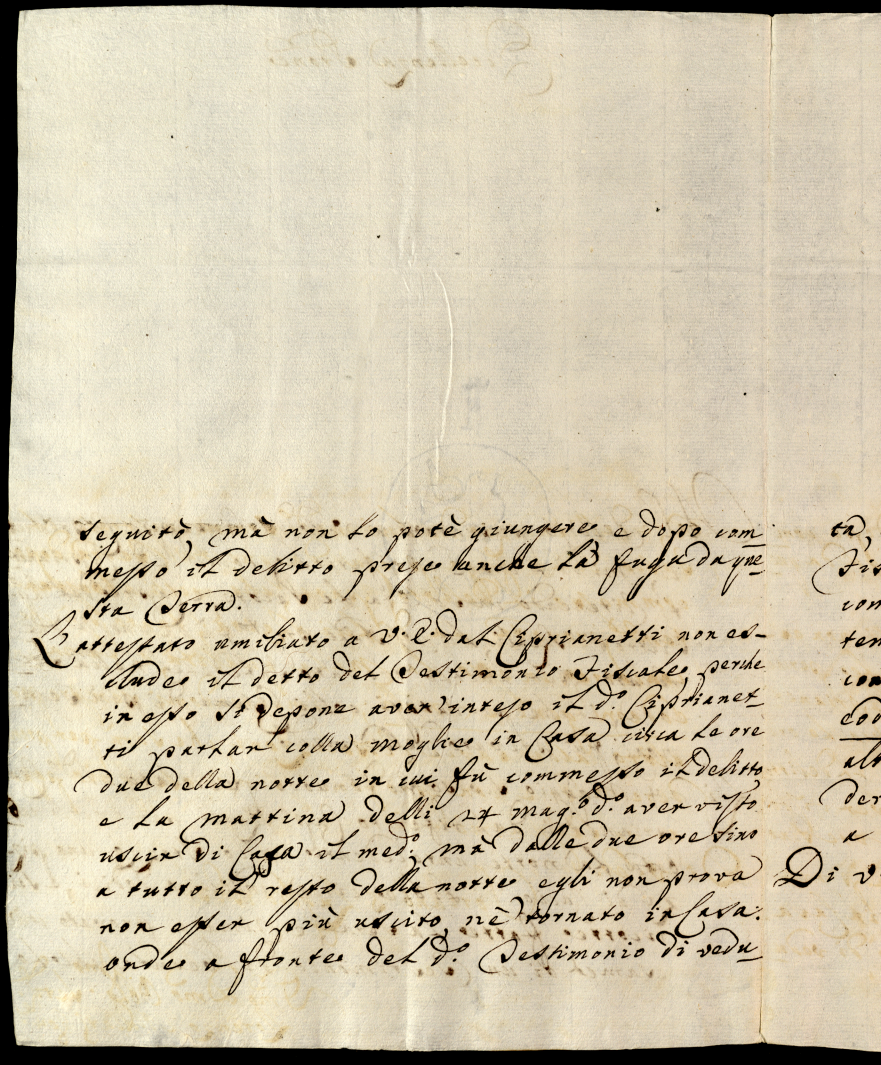 seguitò, mà non lo potè giungere e dopo com-
messo il delitto prese anche la fuga da que-
sta Terra.
L'attestato umiliato a V. E. dal Ciprianetti non es-
clude il detto del Testimonio Fiscale, perche
in esso si depone aver inteso il d.º Ciprianet-
ti parlar colla moglie in Casa circa le ore
due della notte in cui fù commesso il delitto,
e la mattina delli 24 mag.º d.º aver visto
uscir di Casa il med.º, mà dalle due ore sino
a tutto il resto della notte egli non prova
non esser più uscito, nè tornato in Casa:
onde a fronte del d.º Testimonio di vedu-
ta,
Fis
com
ten
con
alt
der
a
Di V